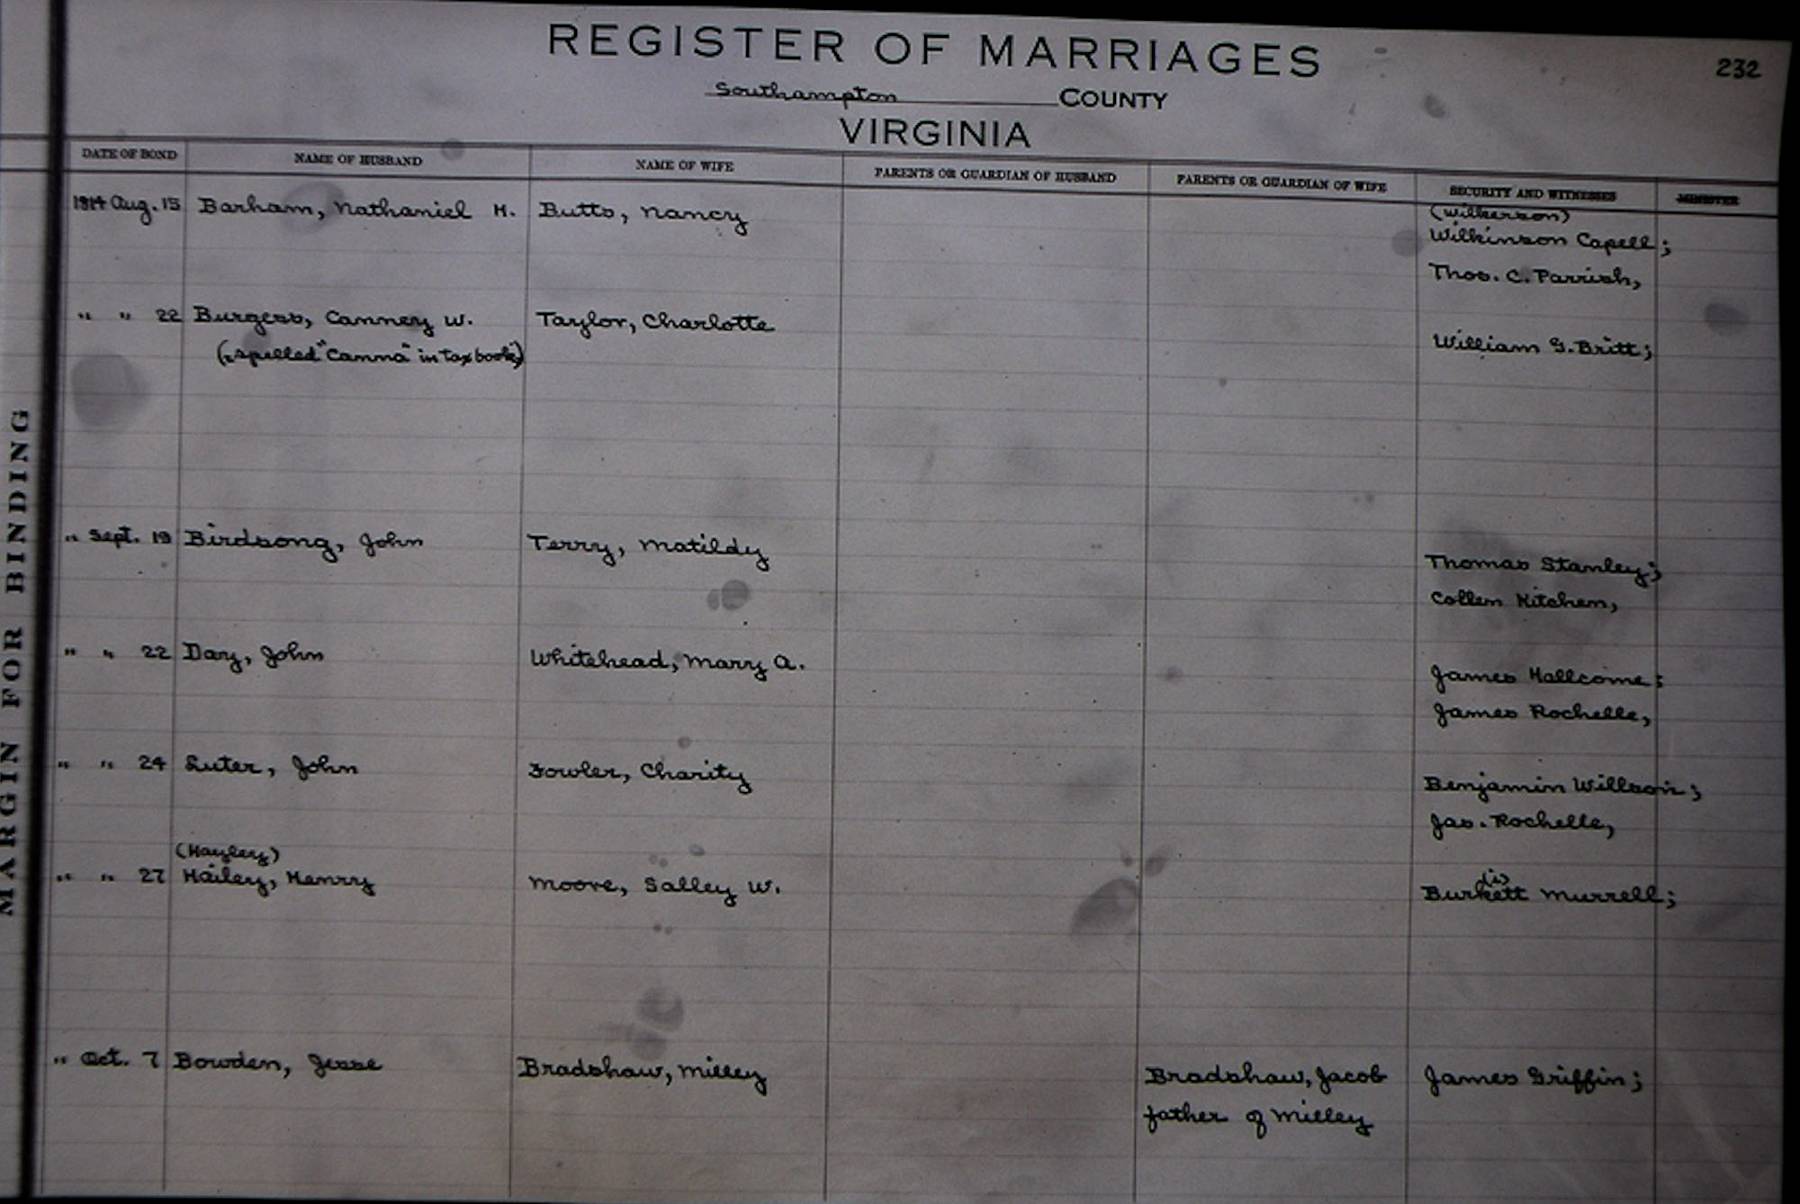 REGISTER OF MARRIAGES
232
Southampton COUNTY
VIRGINIA
DATE OF BOND NAME OF HUSBAND NAME OF WIFE PARENTS OR GUARDIAN OF HUSBAND PARENTS OR GUARDIAN OF WIFE SECURITY AND WITNESSES MINISTER
(Wilkerson)
1814 Aug. 15 Barham, Nathaniel H. Butts, Nancy Wilkinson Capell;
Thos. C. Parrish,
" " 22 Burgess, Canney W. Taylor, Charlotte
(spelled "Canna" in tax books) William G. Britt;
" Sept. 19 Birdsong, John Terry, Matildy Thomas Stanley;
Collen Kitchen,
" " 22 Day, John Whitehead, Mary A. James Hallcome;
James Rochelle,
" " 24 Luter, John Fowler, Charity Benjamin Willson;
Jas. Rochelle,
(Hayley) (is)
" " 27 Hailey, Henry Moore, Salley W. Burkett Murrell;
" Oct. 7 Bowden, Jesse Bradshaw, Milley Bradshaw, Jacob James Griffin;
father of Milley
MARGIN FOR BINDING